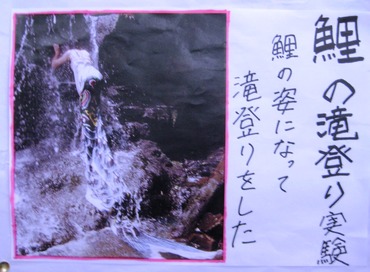 鯉の滝登り実験
鯉の姿になって
滝登りをした